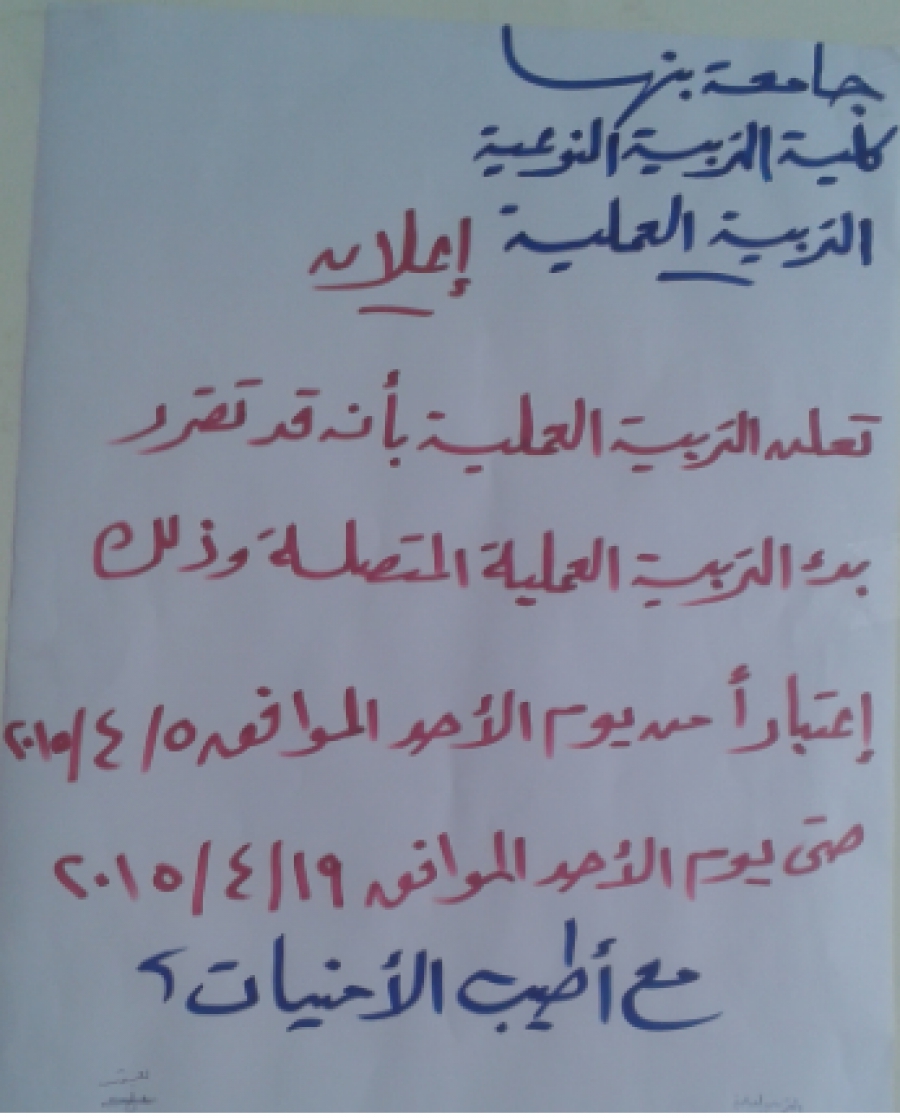 جامعة بنها
كلية التربية النوعية
التربية العملية
إعلان
تعلن التربية العملية بأنه قد تقرر
بدء التربية العملية المتصلة وذلك
إعتباراً من يوم الأحد الموافق ٥/٤/٢٠١٥
حتى يوم الأحد الموافق ١٩/٤/٢٠١٥
مع أطيب الأمنيات؟